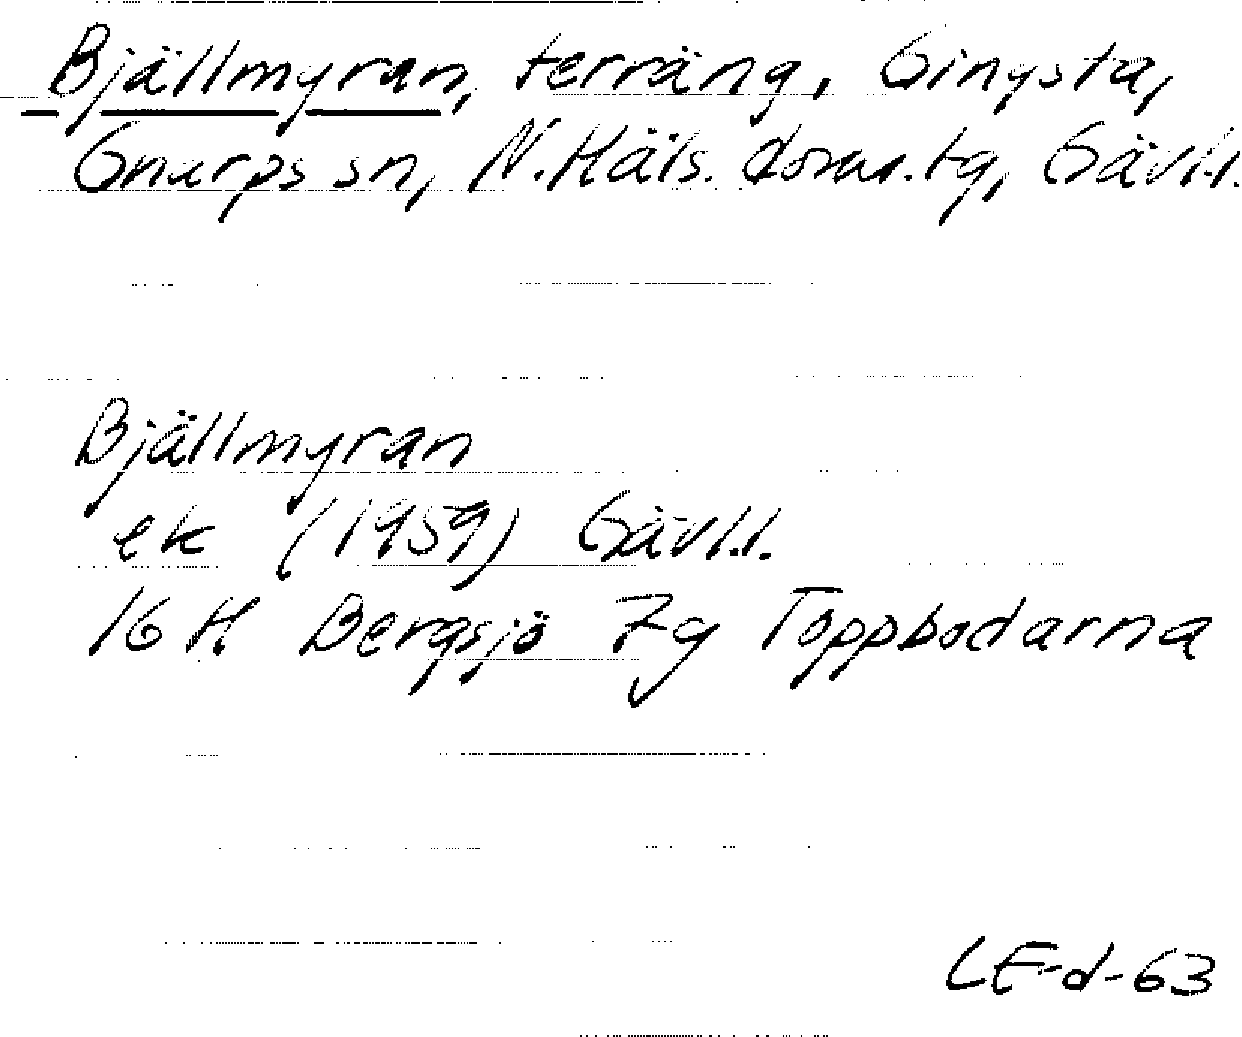 Bjällmyran, terräng, Gingsta,
Gnarps sn, N. Häls. doms.tg, Gävl.l.
Bjällmyran
ek (1959) Gävl.l.
16 H Bergsjö 7g Toppbodarna
LE-d-63